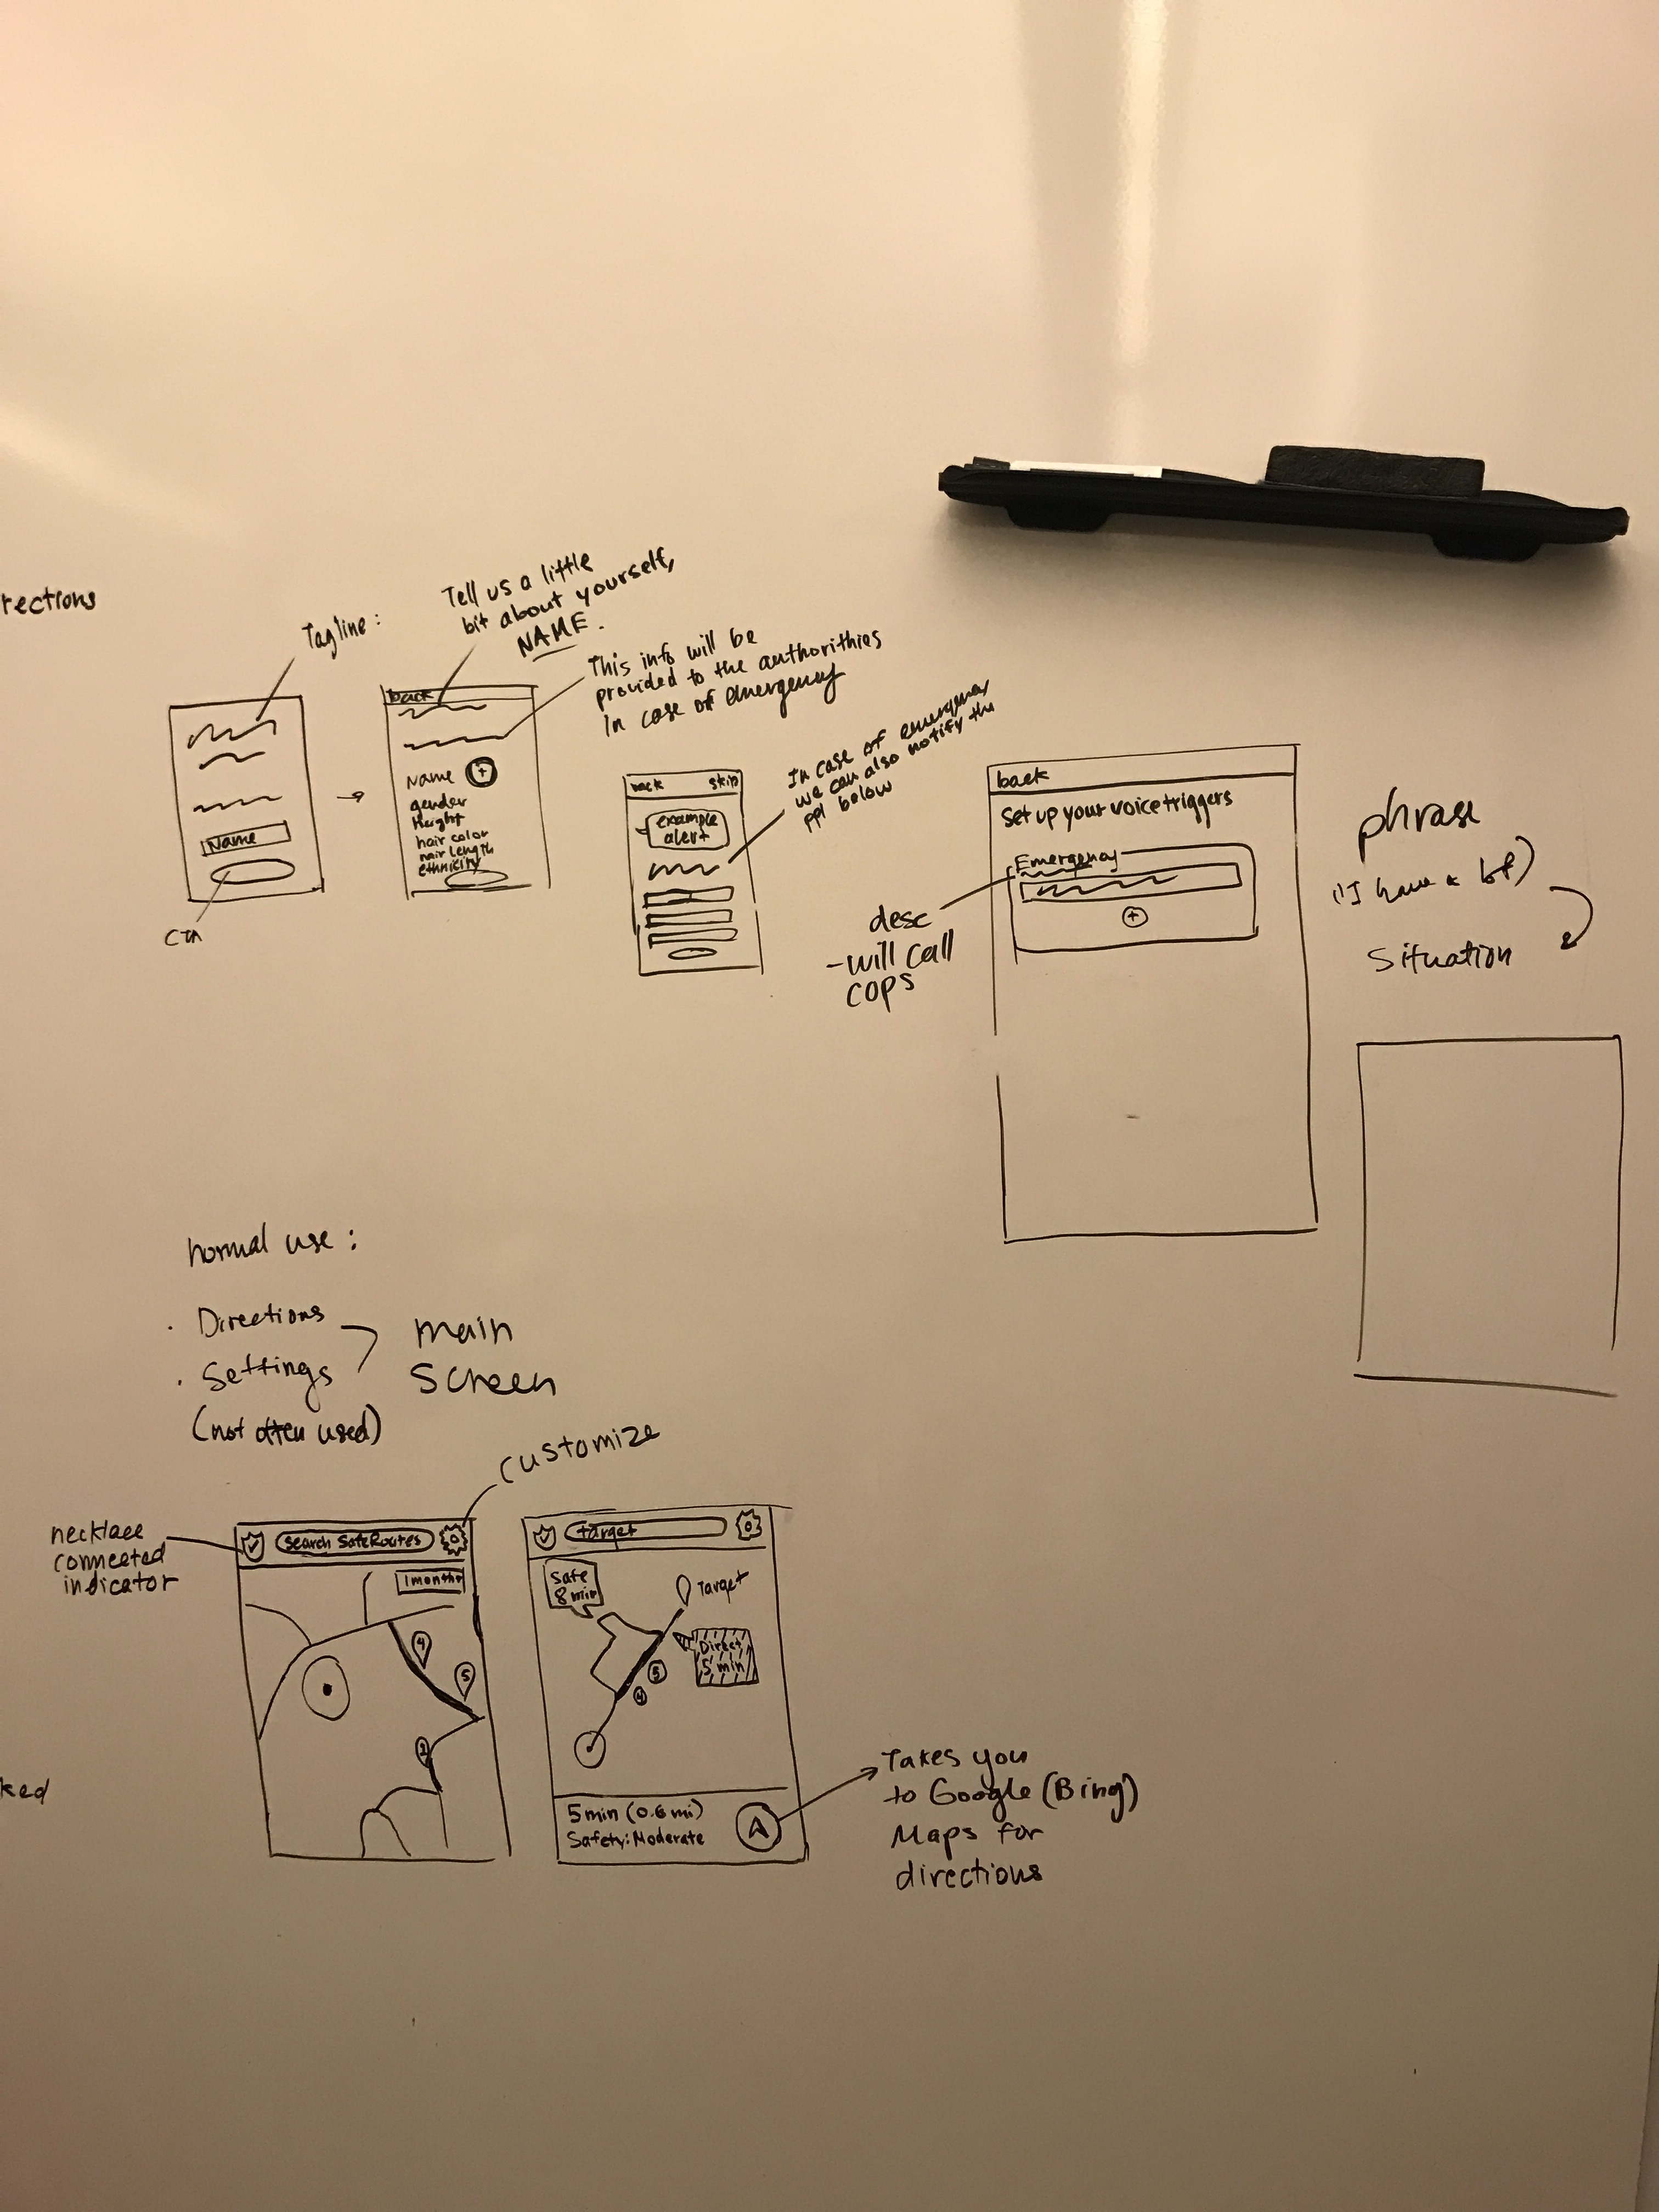 rections
Tagline:
Name
CTA
Tell us a little
bit about yourself,
NAME.
This info will be
provided to the authorithies
in case of emergency
back
Name +
gender
Height
hair color
hair length
ethnicity
back skip
example
alert
In case of emergency
we can also notify the
ppl below
back
Set up your voice triggers
Emergency
+
desc
-will call
cops
phrase
("I have a bf)
Situation
normal use:
· Directions
· Settings
(not often used)
main
screen
customize
necklace
connected
indicator
search SafeRoutes
1 month
4
5
2
target
Safe
8 min
Target
Direct
5 min
5
4
5 min (0.6 mi)
Safety: Moderate
Takes you
to Google (Bing)
Maps for
directions
ked